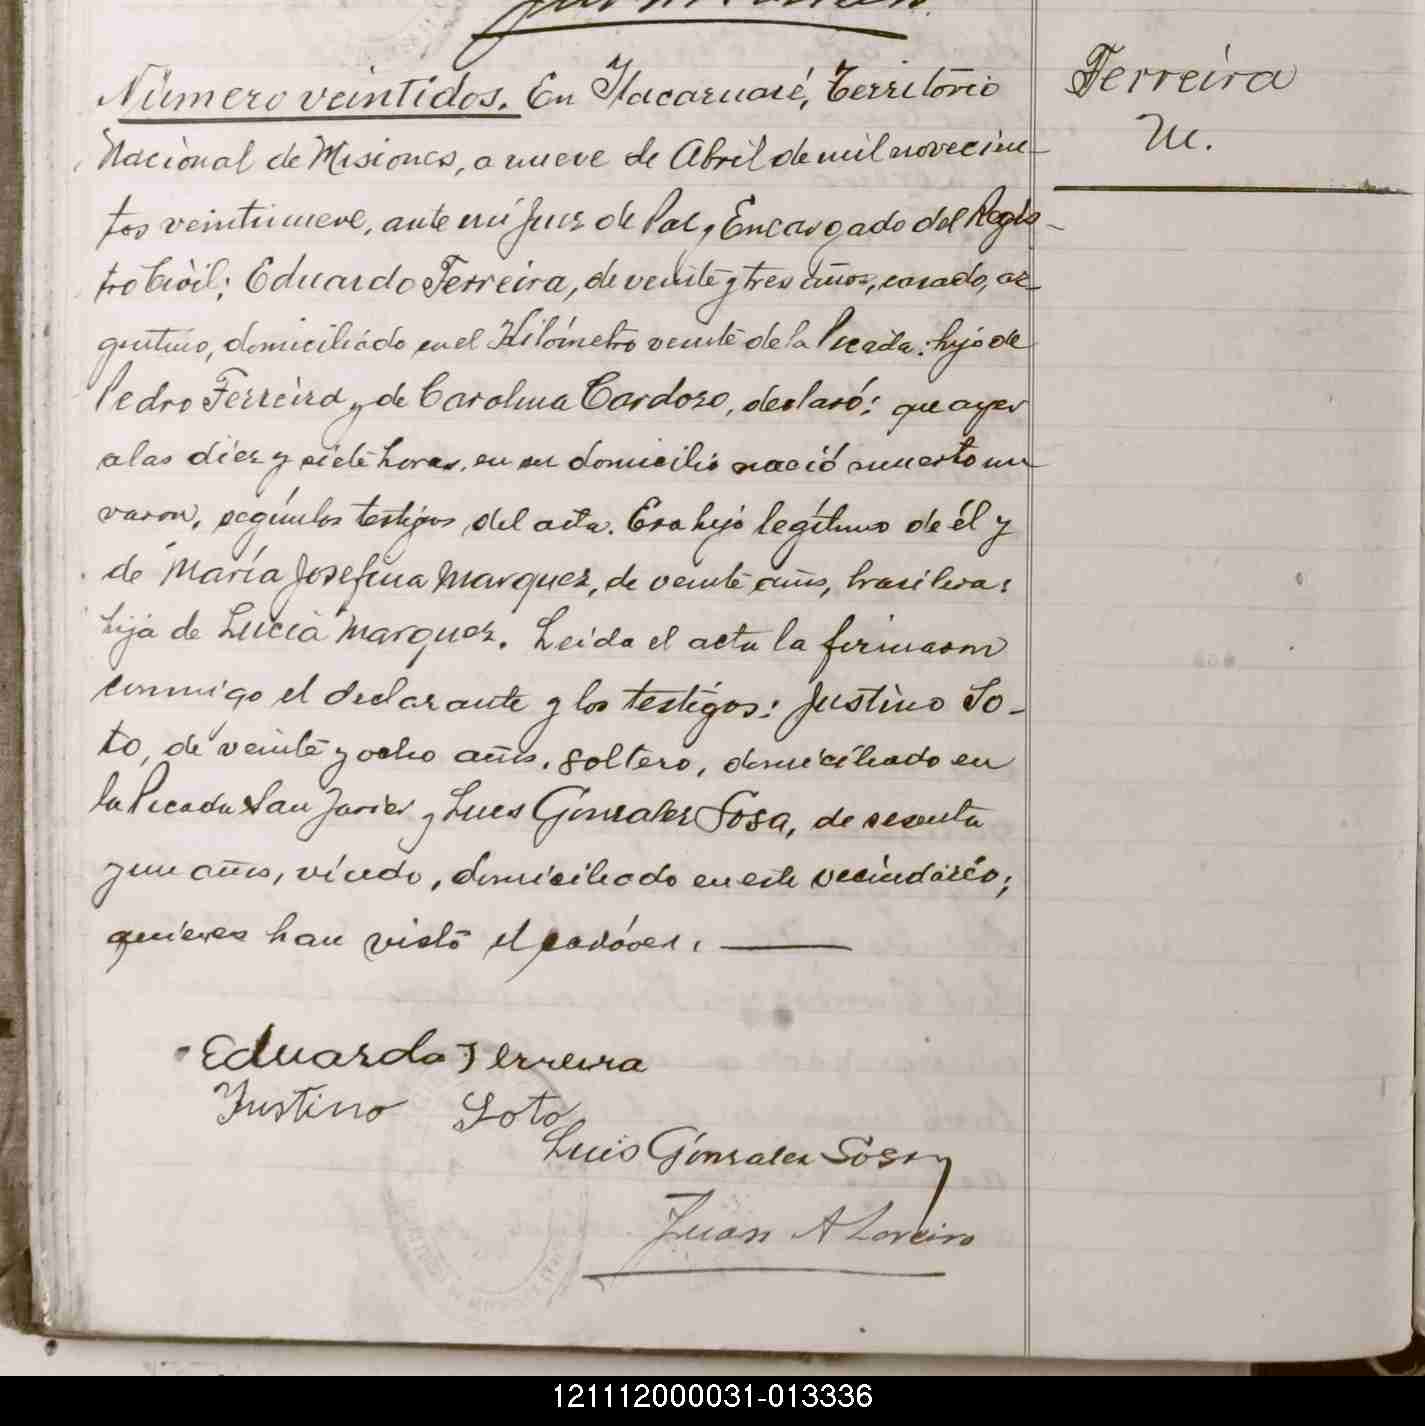 Número veintidos. En Itacaruaré, Territorio
Ferreira
M.
Nacional de Misiones, a nueve de Abril de mil novecien-
tos veintinueve, ante mí Juez de Paz y Encargado del Regis-
tro Civil; Eduardo Ferreira, de veinte y tres años, casado, ar-
gentino, domiciliado en el Kilómetro veinte de la Picada: hijo de
Pedro Ferreira y de Carolina Cardozo, declaró: que ayer
a las diez y siete horas, en su domicilio nació muerto un
varon, según los testigos del acta. Era hijo legítimo de él y
de María Josefina Marquez, de veinte años, brasilera:
hija de Lucia Marquez. Leida el acta la firmaron
conmigo el declarante y los testigos: Justino So-
to, de veinte y ocho años, soltero, domiciliado en
la Picada San Javier y Luis Gonzalez Sosa, de sesenta
y un años, viudo, domiciliado en este vecindario;
quienes han visto el cadáver.
Eduardo Ferreira
Justino Soto
Luis Gonzalez Sosa
Juan A Loreiro
121112000031-013336